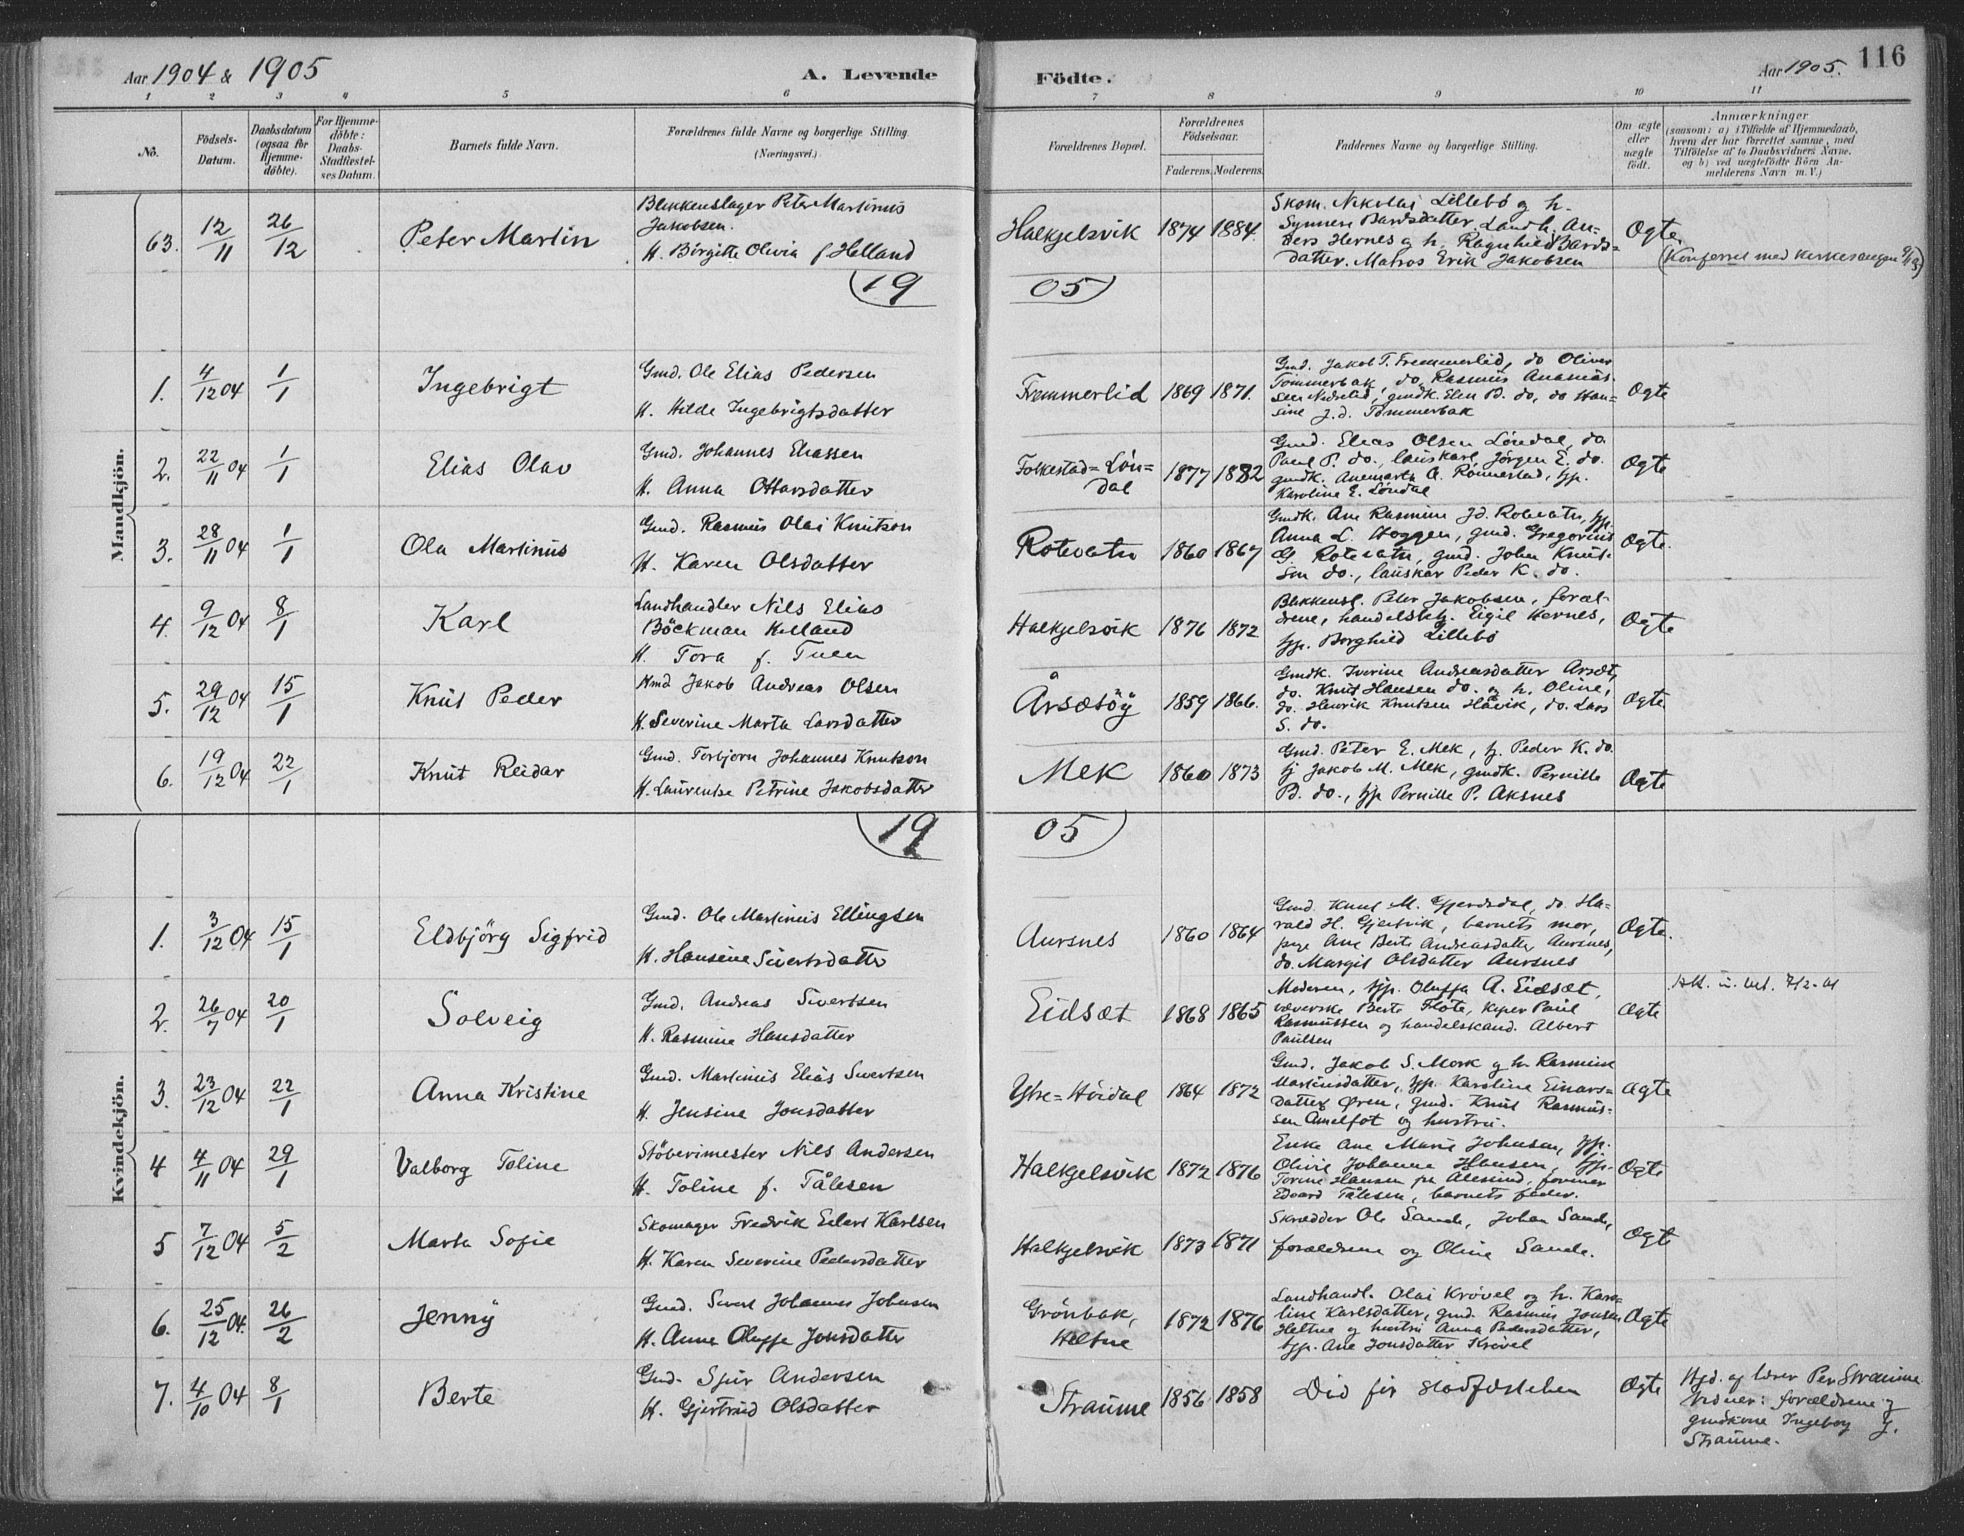 Aar 1904 & 1905
A. Levende Födte.
Aar 1905.
116
1 2 3 4 5 6 7 8 9 10 11
No.
Födsels-Datum.
Daabsdatum (ogsaa for Hjemme-döbte).
For Hjemme-döbte: Daabs-Stadfæstel-ses Datum.
Barnets fulde Navn.
Forældrenes fulde Navne og borgerlige Stilling. (Næringsvei.)
Forældrenes Bopæl.
Forældrenes Födselsaar.
Faderens. Moderens.
Faddernes Navne og borgerlige Stilling.
Om ægte eller uægte födt.
Anmærkninger
(saasom: a) i Tilfælde af Hjemmedaab, hvem der har forrettet samme, med Tilföielse af to Daabsvidners Navne. og b) ved uægtefödte Börn Anmelderens Navn m. V.)
63. 12/11 26/12 Peter Martin
Blikkenslager Peter Martinus
Jakobsen.
H. Birgitte Olivia f. Helland
Halkjelsvik 1874 1884.
Skom. Nikolai Lillebö og h.
Synneve Bardsdatter, Landh. An-
ders Hernes og h. Ragnhild Bards=
datter. Matros Erik Jakobsen
Ægte.
19 05
Mandkjön.
1. 4/12 04 1/1 Ingebrigt
Gmd. Ole Elias Pedersen
H. Hilde Ingebrigtsdatter
Fremmerlid 1869 1871.
Gmd. Jakob T. Fremmerlid, do Oliver
Tömmerbak, do. Rasmus Ananias-
sen Nedrelid, gmdk. Elen P. do, do Han=
sine J. d. Tömmerbak
Ægte
2. 22/11 04 1/1 Elias Olav
Gmd. Johannes Eliassen
H. Anna Ottarsdatter
Folkestad=Løn=
dal 1877 1882
Gmd. Elias Olsen Löndal, do.
Paul P. do., lauskarl Jörgen E. do.
gmdk. Anemarta A. Rønnestad, pp.
Karoline E. Løndal
Ægte
3. 28/11 04 1/1 Ola Martinus
Gmd. Rasmus Olai Knutson
H. Karen Olsdatter
Rotevatn 1860 1867
Gmdk. Ane Rasmine J.d. Rotevatn, pp.
Anna L. Hoggen, gmd. Gregorius
G. Rotevatn, gmd. Johan Knut-
sen do., lauskar Peder K. do.
Ægte.
4. 9/12 04 8/1 Karl
Landhandler Nils Elias
Böckman Helland
H. Tora f. Tuen
Halkjelsvik 1876 1872
Blikkensl. Peter Jakobsen, foræl-
drene, handelsbetj. Eigil Hernes,
pp. Borghild Lillebö
Ægte
5. 29/12 04 15/1 Knut Peder
Hmd Jakob Andreas Olsen
H. Severine Marta Larsdatter
Årsætöy 1859 1866.
Gmdk. Iverine Andreasdatter Arsæt,
do. Knut Hansen do. og h. Oline,
do. Henrik Knutsen Håvik, do. Lars
S. do.
Ægte.
6. 19/12 04 22/1 Knut Reidar
Gmd. Torbjorn Johannes Knutson
H. Laurentse Petrine Jakobsdatter
Mek 1860 1873
Gmd. Peter E. Mek, pj. Peder K. do.
pj Jakob M. Mek, gmdk. Pernille
P. do., pp Pernille P. Aksnes
Ægte
19 05
Kvindekjön.
1. 3/12 04 15/1 Eldbjörg Sigfrid
Gmd. Ole Martinus Ellingsen
H. Hansine Sivertsdatter
Aursnes 1860 1864
Gmd. Knut M. Gjerdsdal, do. Ha-
rald H. Gjersvik, barnets mor,
pige Ane Berte Andreasdatter Aursnes,
do. Margit Olsdatter Aursnes
Ægte.
2. 26/7 04 20/1 Solveig
Gmd. Andreas Sivertsen
H. Rasmine Hansdatter
Eidsæt 1868 1865
Moderen, pp. Oluffa A. Eidsæt,
væverske Berte Flöte, Paul
Rasmussen og handelskand. Albert
Paulsen
Ægte
3. 23/12 04 22/1 Anna Kristine
Gmd. Martinus Elias Sivertsen
H. Jensine Jonsdatter
Ytre=Höidal 1864 1872
Gmd. Jakob S. Mork og h. Rasmine
Martinusdatter, pp. Karoline Einars=
datter Øren, gmd. Knut Rasmus-
sen Amelfot og hustru.
Ægte
4 4/11 04 29/1 Valborg Toline
Støberimester Nils Andersen
H. Toline f. Tålesen
Halkjelsvik 1872 1876
Enke Ane Marie Johnsen, pp.
Olivie Johanne Hansen, pp.
Torine Hansen pr Alesund, former
Edvard Tålesen, barnets fader.
Ægte
5 7/12 04 5/2 Marta Sofie
Skomager Fredrik Edert Karlsen
H. Karen Severine Pedersdatter
Halkjelsvik 1873 1871
Skrædder Ole Sande, Johan Sande,
forældrene og Oline Sande.
Ægte
6. 25/12 04. 26/2 Jenny
Gmd. Sivert Johannes Johnsen
H. Anna Oluffa Jonsdatter
Grönbak,
Heltne 1872 1876
Landhandl. Olai Krövel og h. Karo-
line Karlsdatter, gmd. Rasmus Jonsen
Heltne og hustru Anna Pedersdatter,
pp. Ane Jonsdatter Krövel
Ægte
7. 4/10 04 8/1 Berte
Gmd. Sjur Andersen
H. Gjertrud Olsdatter
Straume 1856 1858
Död för stadfæstelsen
Ægte
Hjd. af lærer Per Straume
Vidner: forældrene og
gmdkone Ingeborg
Straume.